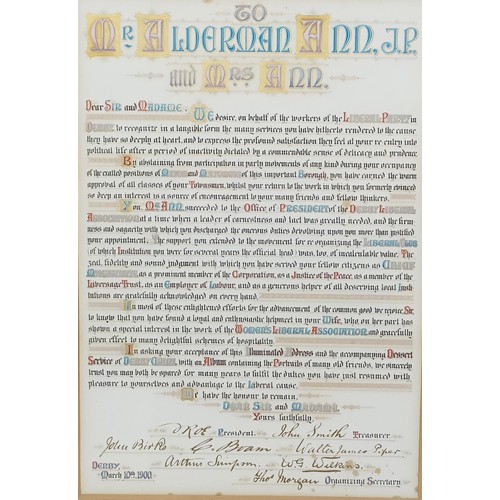 TO
MR. ALDERMAN ANN, J.P.,
and MRS. ANN.
Dear Sir and Madame, We desire, on behalf of the workers of the LIBERAL PARTY in
DERBY to recognize in a tangible form the many services you have hitherto rendered to the cause
they have so deeply at heart, and to express the profound satisfaction they feel at your re entry into
political life after a period of inactivity dictated by a commendable sense of delicacy and prudence.
By abstaining from participation in party movements of any kind during your occupancy
of the exalted positions of MAYOR and MAYORESS of this important Borough, you have earned the warm
approval of all classes of your Townsmen, whilst your return to the work in which you formerly evinced
so deep an interest is a source of encouragement to your many friends and fellow thinkers.
You, MR. ANN, succeeded to the Office of PRESIDENT of the DERBY LIBERAL
ASSOCIATION at a time when a leader of earnestness and tact was greatly needed, and the firm-
ness and sagacity with which you discharged the onerous duties devolving upon you more than justified
your appointment. The support you extended to the movement for re organizing the LIBERAL CLUB
of which Institution you were for several years the official head, was, too, of incalculable value. The
zeal, fidelity and sound judgment with which you have served your fellow citizens as CHIEF
MAGISTRATE, as a prominent member of the Corporation, as a Justice of the Peace, as a member of the
Liversage Trust, as an Employer of Labour, and as a generous helper of all deserving local Insti
tutions are gratefully acknowledged on every hand.
In most of these enlightened efforts for the advancement of the common good we rejoice, Sir,
to know that you have found a loyal and enthusiastic helpmeet in your Wife, who on her part has
shown a special interest in the work of the WOMEN'S LIBERAL ASSOCIATION, and gracefully
given effect to many delightful schemes of hospitality.
In asking your acceptance of this Illuminated Address and the accompanying Dessert
Service of DERBY CHINA, with an Album containing the Portraits of many old friends, we sincerely
trust you may both be spared for many years to fulfil the duties you have just resumed with
pleasure to yourselves and advantage to the Liberal cause.
We have the honour to remain,
DEAR SIR and MADAME,
Yours faithfully,
President. John Smith Treasurer.
John Birks C. Boam Walter James Piper
Arthur Simpson W.G. Wilkins.
DERBY,
March 10th, 1900. Thos Morgan Organizing Secretary